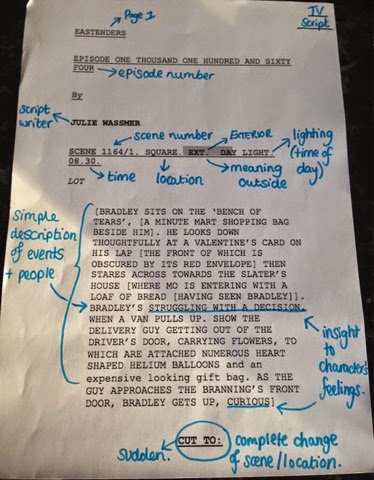 Page 1
TV
Script
EASTENDERS
EPISODE ONE THOUSAND ONE HUNDRED AND SIXTY
FOUR
episode number
By
script
writer
JULIE WASSMER
scene number
EXTERIOR
lighting
(time of
day)
SCENE 1164/1. SQUARE. EXT. DAY LIGHT.
08.30.
time
location
meaning
outside
LOT
simple
description
of events
+ people
[BRADLEY SITS ON THE 'BENCH OF
TEARS', [A MINUTE MART SHOPPING BAG
BESIDE HIM]. HE LOOKS DOWN
THOUGHTFULLY AT A VALENTINE'S CARD ON
HIS LAP [THE FRONT OF WHICH IS
OBSCURED BY ITS RED ENVELOPE] THEN
STARES ACROSS TOWARDS THE SLATER'S
HOUSE [WHERE MO IS ENTERING WITH A
LOAF OF BREAD [HAVING SEEN BRADLEY]].
BRADLEY'S STRUGGLING WITH A DECISION.
WHEN A VAN PULLS UP. SHOW THE
DELIVERY GUY GETTING OUT OF THE
DRIVER'S DOOR, CARRYING FLOWERS, TO
WHICH ARE ATTACHED NUMEROUS HEART
SHAPED HELIUM BALLOONS and an
expensive looking gift bag. AS THE
GUY APPROACHES THE BRANNING'S FRONT
DOOR, BRADLEY GETS UP, CURIOUS]
insight
to
character's
feelings.
CUT TO:
sudden.
complete change
of scene/location.